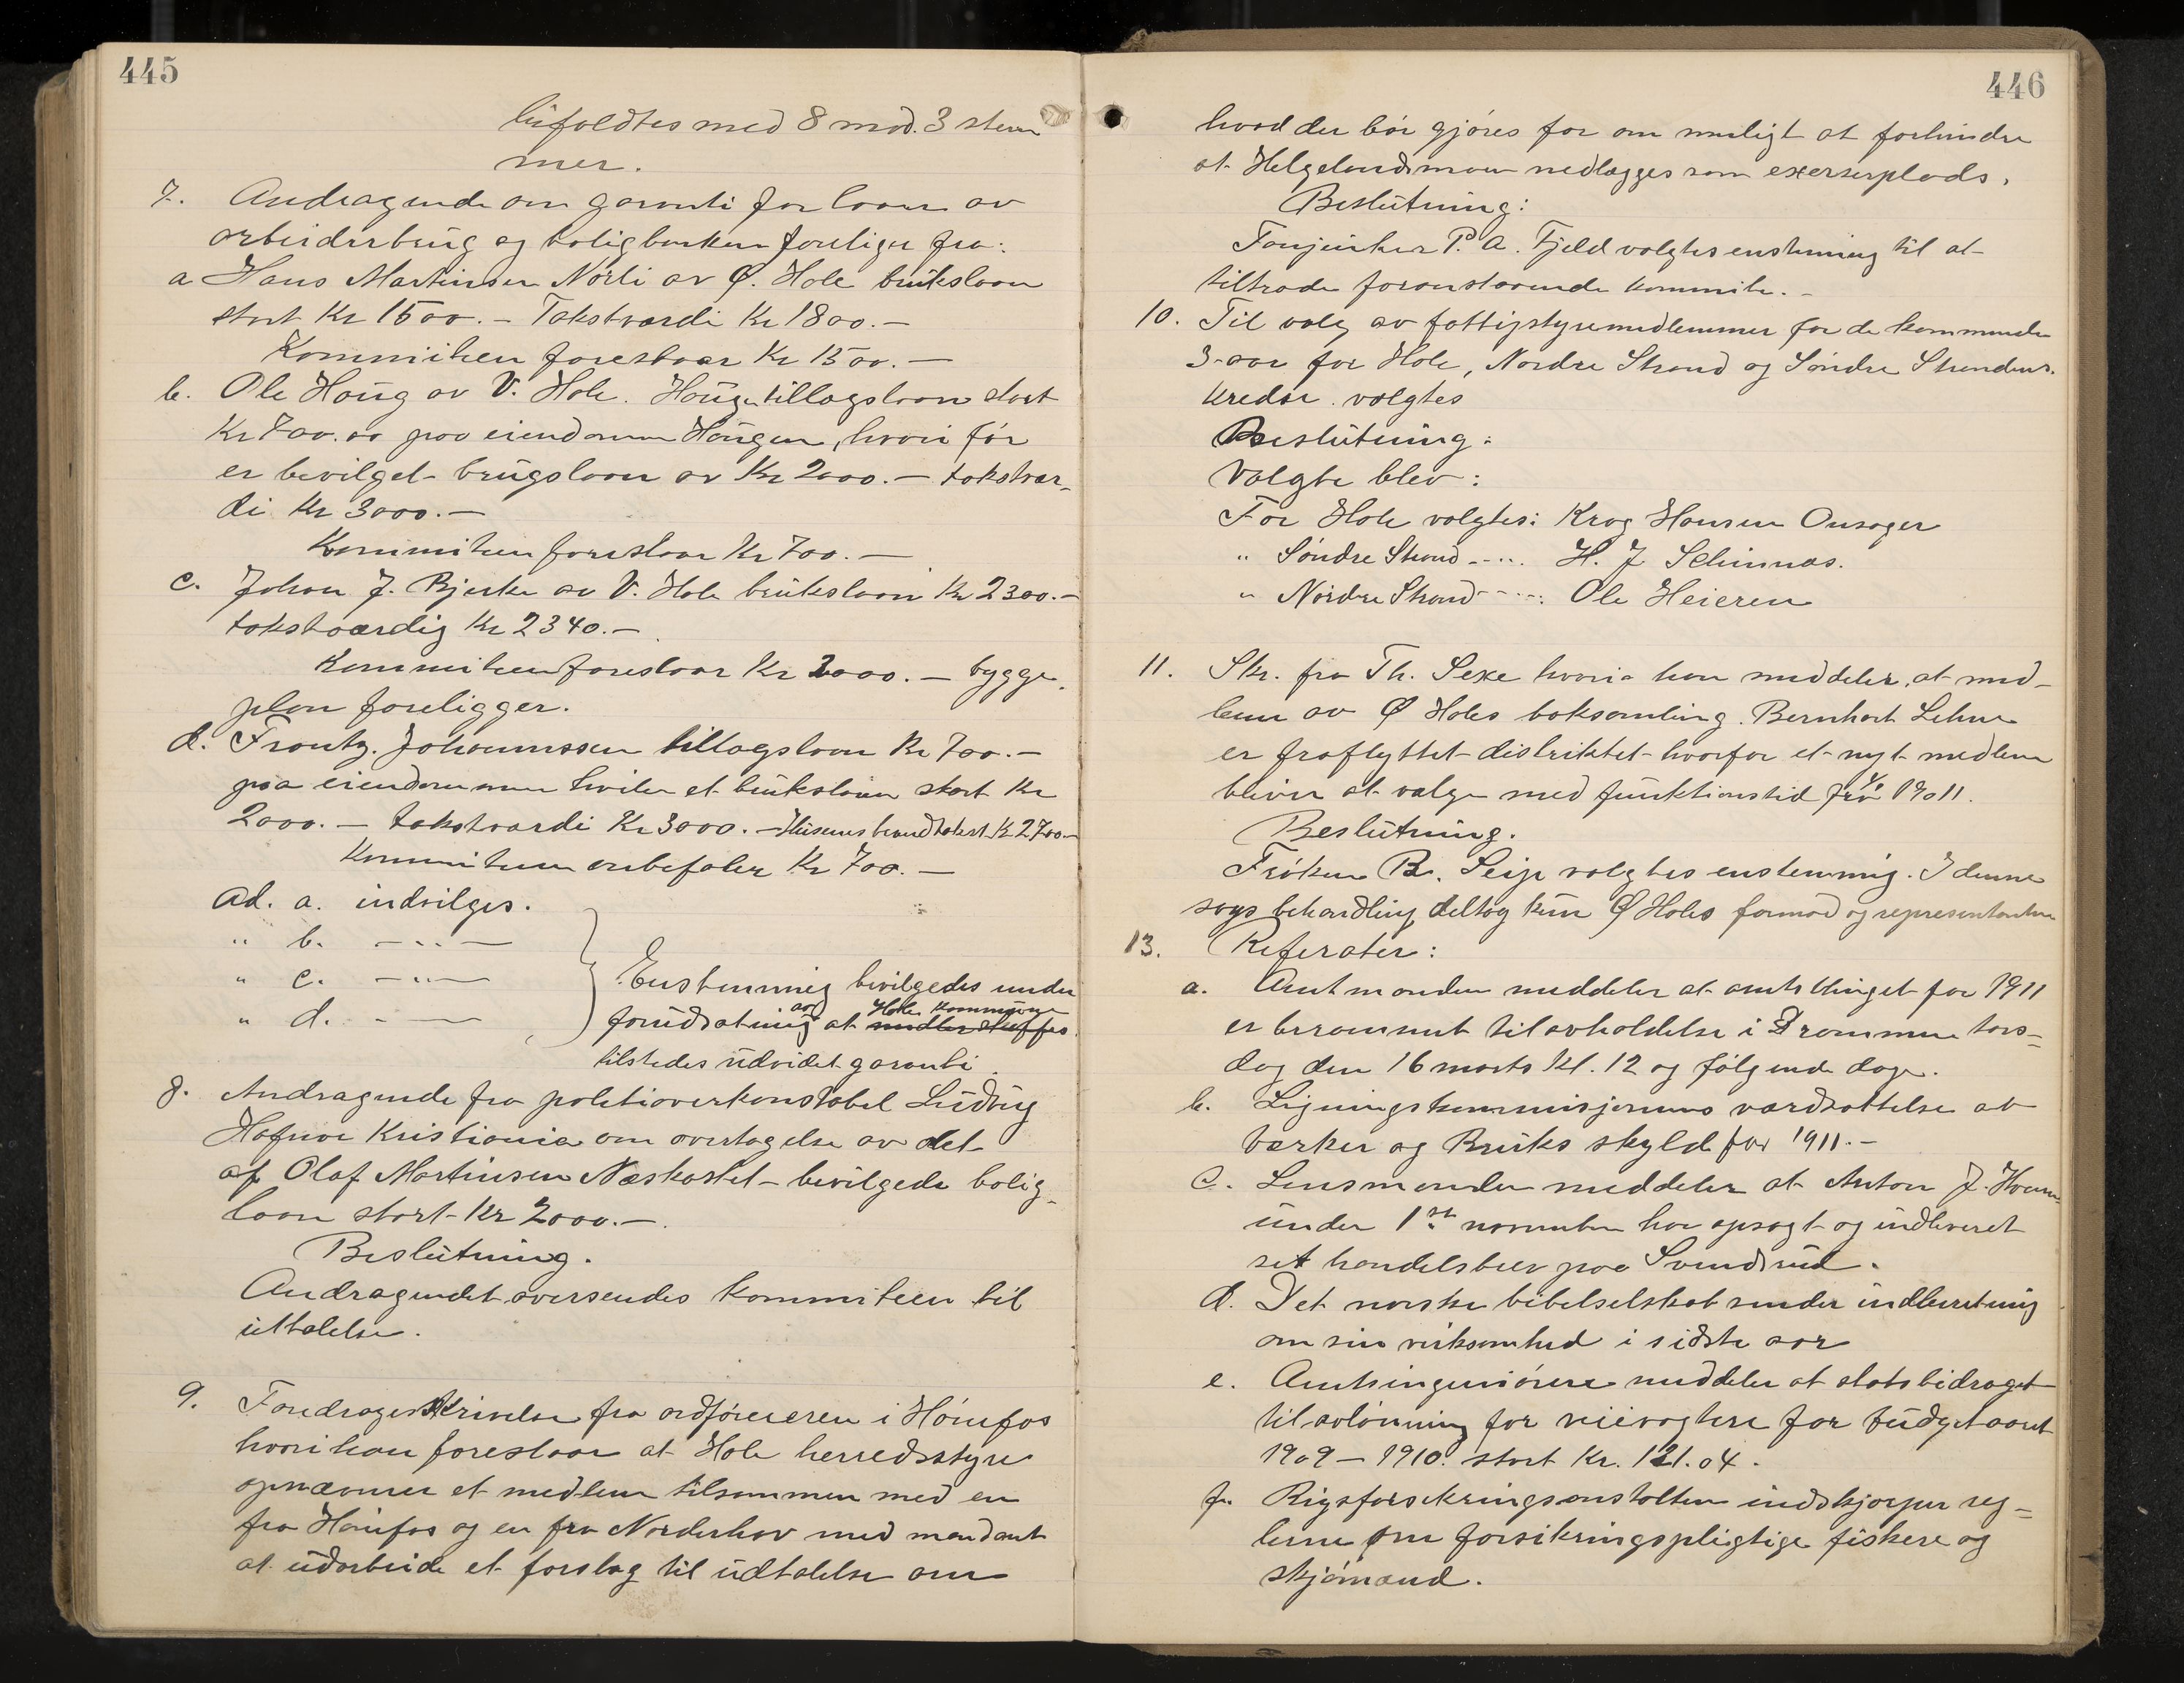 445
bifaldtes med 8 mod. 3 stem
mer.
7. Andragende om garanti for laan av
arbeiderbrug og boligbanken foreliger fra:
a Hans Martinsen Nörli av Ø. Hole brükslaan
stort Kr 1500.– Takstværdi Kr 1800.–
Kommiteen foreslaar Kr 1500.–
b. Ole Haüg av V. Hole. Haügen tillægslaan stort
Kr 700.00 paa eiendommen Haügen, hvori för
er bevilget brügslaan av Kr 2000.– takstvær-
di Kr 3000.–
Kommiteen foreslaar Kr 700.–
c. Johan J. Bjerke av V. Hole brükslaan Kr 2300.–
takstværdig Kr 2340.–
Kommiteen foreslaar Kr 2000.– bygge-
plan foreligger.
d. Frantz. Johannssen tillægslaan Kr 700.–
paa eiendommen hviler et brükslaan stort Kr
2000.– takstværdi Kr 3000.– Hüsenes brandtakst Kr 2700.–
Kommiteen anbefaler Kr 700.–
Ad. a. indvilges.
" b. – " –
" c. – " – Enstemmig bevilgedes under
" d. – " – forüdsætning av at Hole Kommüne
tilstedes üdvidet garanti.
8. Andragende fra politioverkonstabel Lüdvig
Hafnor Kristiania om overtagelse av det
af Olaf Martinsen Næskastet bevilgede bolig-
laan stort Kr 2000.–
Beslütning.
Andragendet oversendes Kommiteen til
üttalelse.
9. Foredroges Skrivelse fra ordföreren i Hönefos
hvori han foreslaar at Hole herredsstyre
opnævner et medlem tilsammen med en
fra Hönefos og en fra Norderhov med mandant
at üdarbeide et forslag til üdtalelse om
446
hvad der bör gjöres for om muligt at forhindre
at Helgelandsmoen nedlægges som exerserplads.
Beslütning:
Fanejünker P. A. Fjeld valgtes enstemmig til at
tiltræde foranstaaende kommite.–
10. Til valg av fattigstyremedlemmer for de kommende
3-aar for Hole, Nordre Strand og Söndre Strandens
kredse. valgtes
Beslütning:
Valgte blev:
For Hole valgtes: Krog Hansen Onsager
" Söndre Strand – " – H. J. Seljinnæs.
" Nordre Strand – " – : Ole Heieren
11. Skr. fra Th. Sexe hvori han meddeler, at med-
lem av Ø Holes boksamling. Bernhart Lehne
er fraflyttet distriktet hvorfor et nyt medlem
bliver at vælge med fünktionstid fra 1/1 1911.
Beslütning.
Fröken B. Seip valgtes enstemmig. I denne
sags behandling deltog kün Ø Holes formænd og representanter
13. Referater:
a. Amtmanden meddeler at amtsthinget for 1911
er berammet til avholdelse i Drammen tors-
dag den 16 marts Kl. 12 og fölgende dage.
b. Ligningskommisjonens værdsættelse av
Værker og Brüks skyld for 1911.–
c. Lensmanden meddeler at Anton J. Hoen
ünder 1ste november har opsagt og indleveret
sit handelsbrev paa Svendsrud.
d. Det norske bibelselskab sender indberetning
om sin virksomhed i sidste aar
e. Amtsingeniören meddeler at statsbidraget
til avlönning for veivogtere for büdgetaaret
1909–1910. stort Kr. 121.04.
f. Rigsforsikringsanstalten indskjærper reg-
lerne om forsikringspligtige fiskere og
skjömænd.